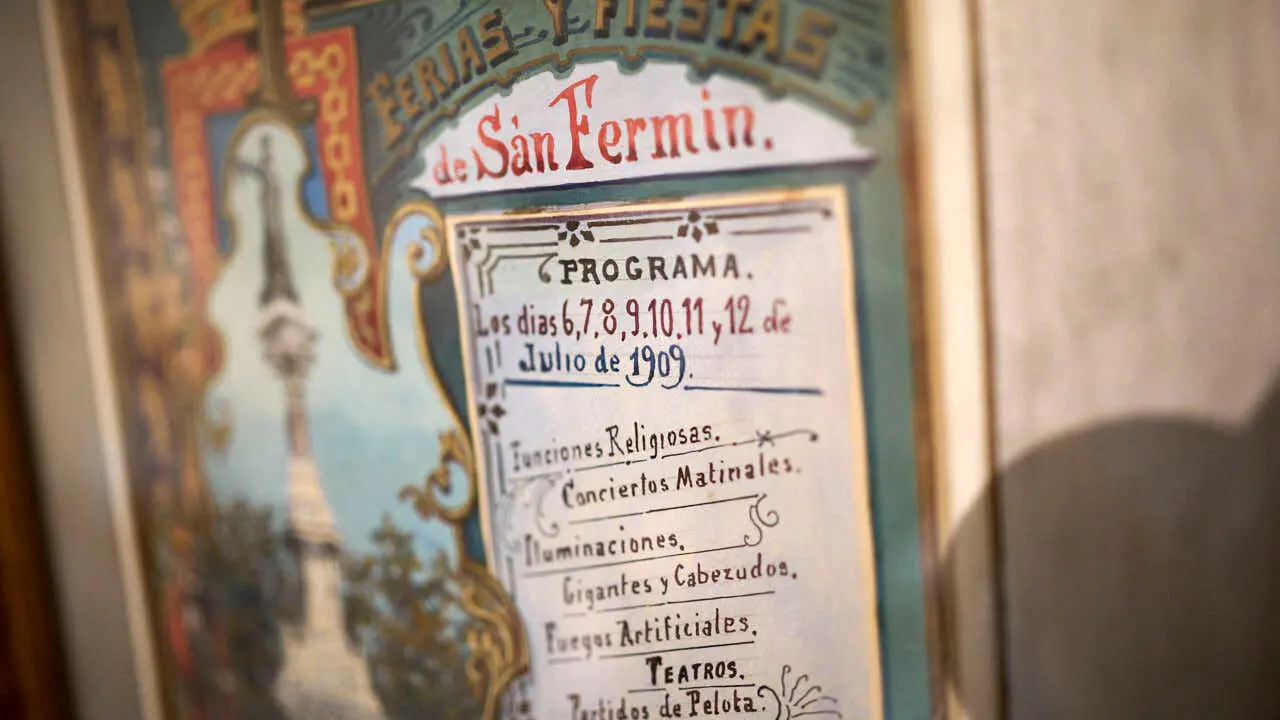 FERIAS Y FIESTAS
de San Fermin.
PROGRAMA.
Los dias 6,7,8,9,10,11 y 12 de
Julio de 1909.
Funciones Religiosas.
Conciertos Matinales.
Iluminaciones.
Gigantes y Cabezudos.
Fuegos Artificiales.
TEATROS.
Partidos de Pelota.